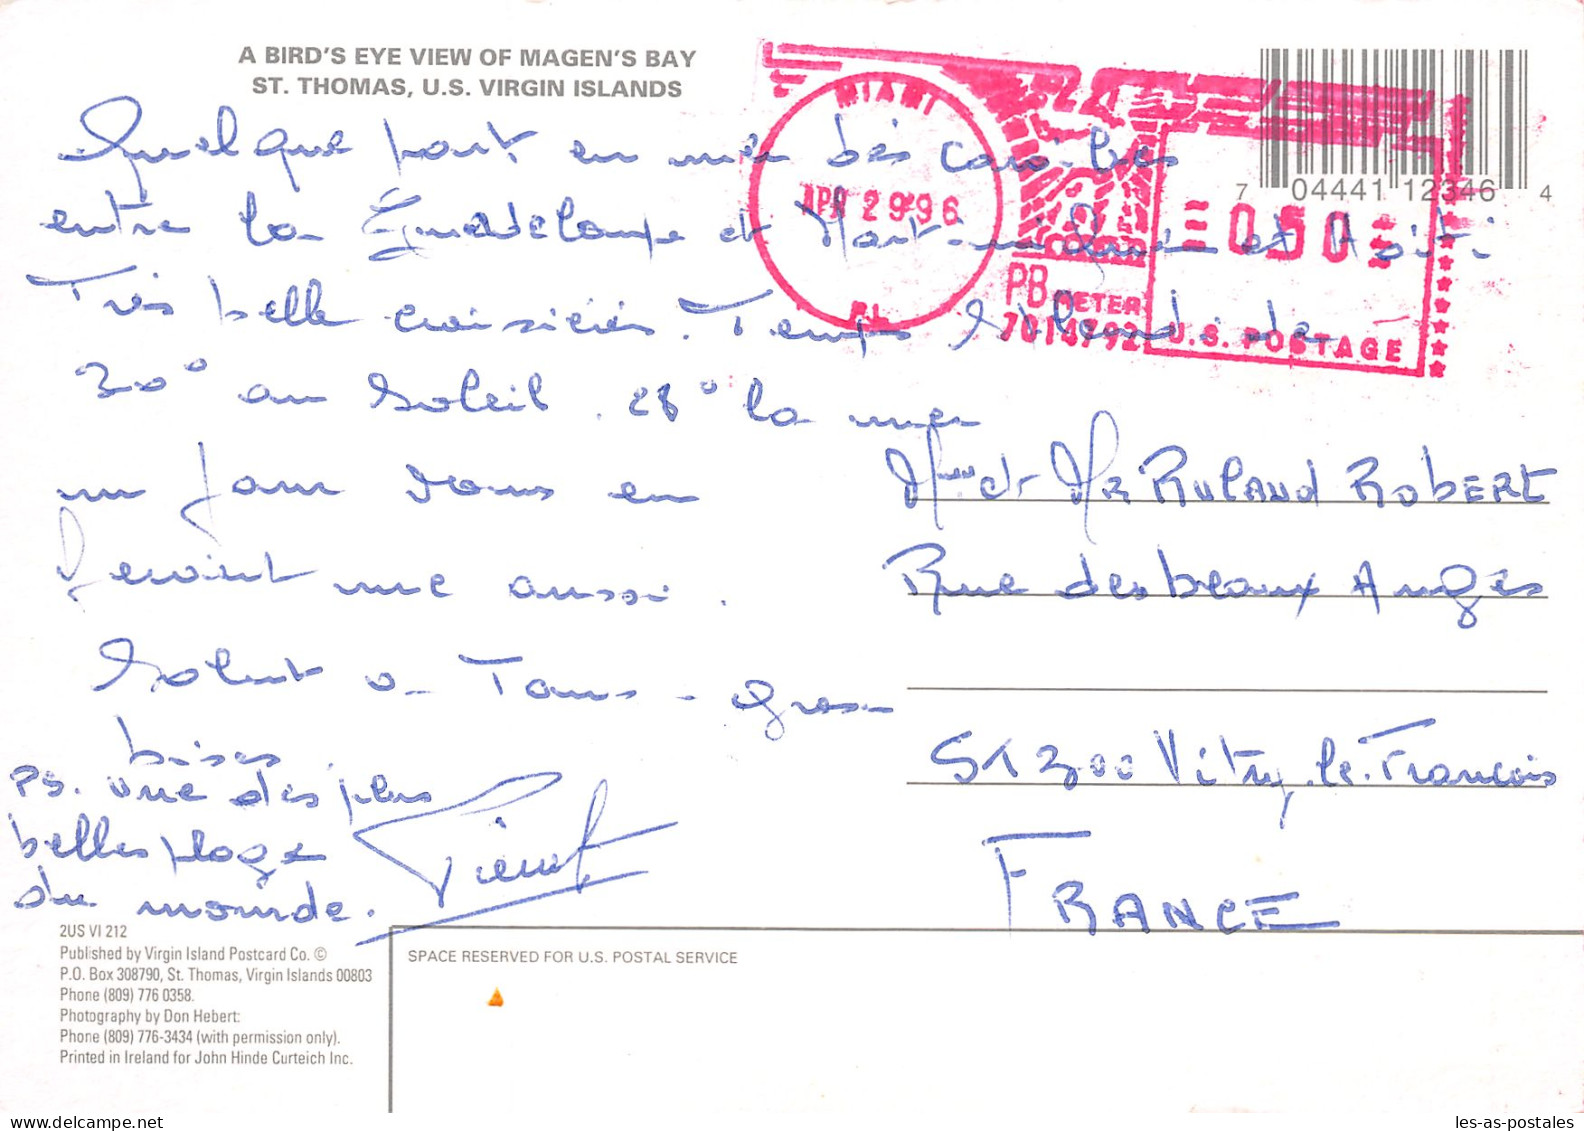 A BIRD'S EYE VIEW OF MAGEN'S BAY
ST. THOMAS, U.S. VIRGIN ISLANDS
MIAMI
APR 29 96
FL
PB METER
7014792
0.50
U.S. POSTAGE
7 04441 12346 4
Quelque part en mer des caraïbes
entre la Guadeloupe et Martinique et Haiti
Très belle croisières. Temps splendide
30° au soleil. 28° la mer
un jour vous en
feroint une aussi.
Salut a Tous - gross
bises.
PS. une des plus
belles plage
du monde.
Mme et Mr RULAND ROBERT
Rue des beaux Anges
51300 Vitry-le-François
FRANCE
2US VI 212
Published by Virgin Island Postcard Co. ©
P.O. Box 308790, St. Thomas, Virgin Islands 00803
Phone (809) 776 0358.
Photography by Don Hebert:
Phone (809) 776-3434 (with permission only).
Printed in Ireland for John Hinde Curteich Inc.
SPACE RESERVED FOR U.S. POSTAL SERVICE
les-as-postales.com